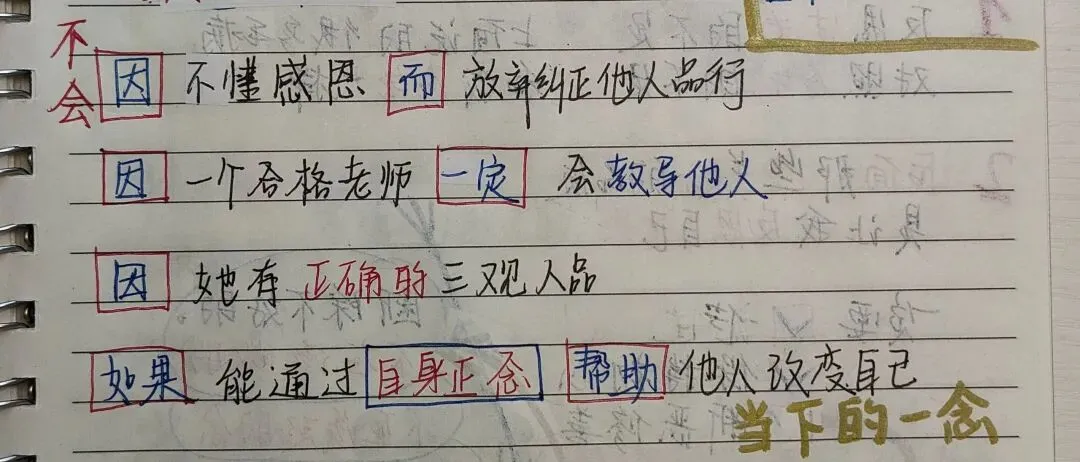 不会
因 不懂感恩 而 放弃纠正他人品行
因 一个合格老师 一定 会教导他人
因 她有正确的三观人品
如果 能通过 自身正念 帮助 他人改变自己
当下的一念